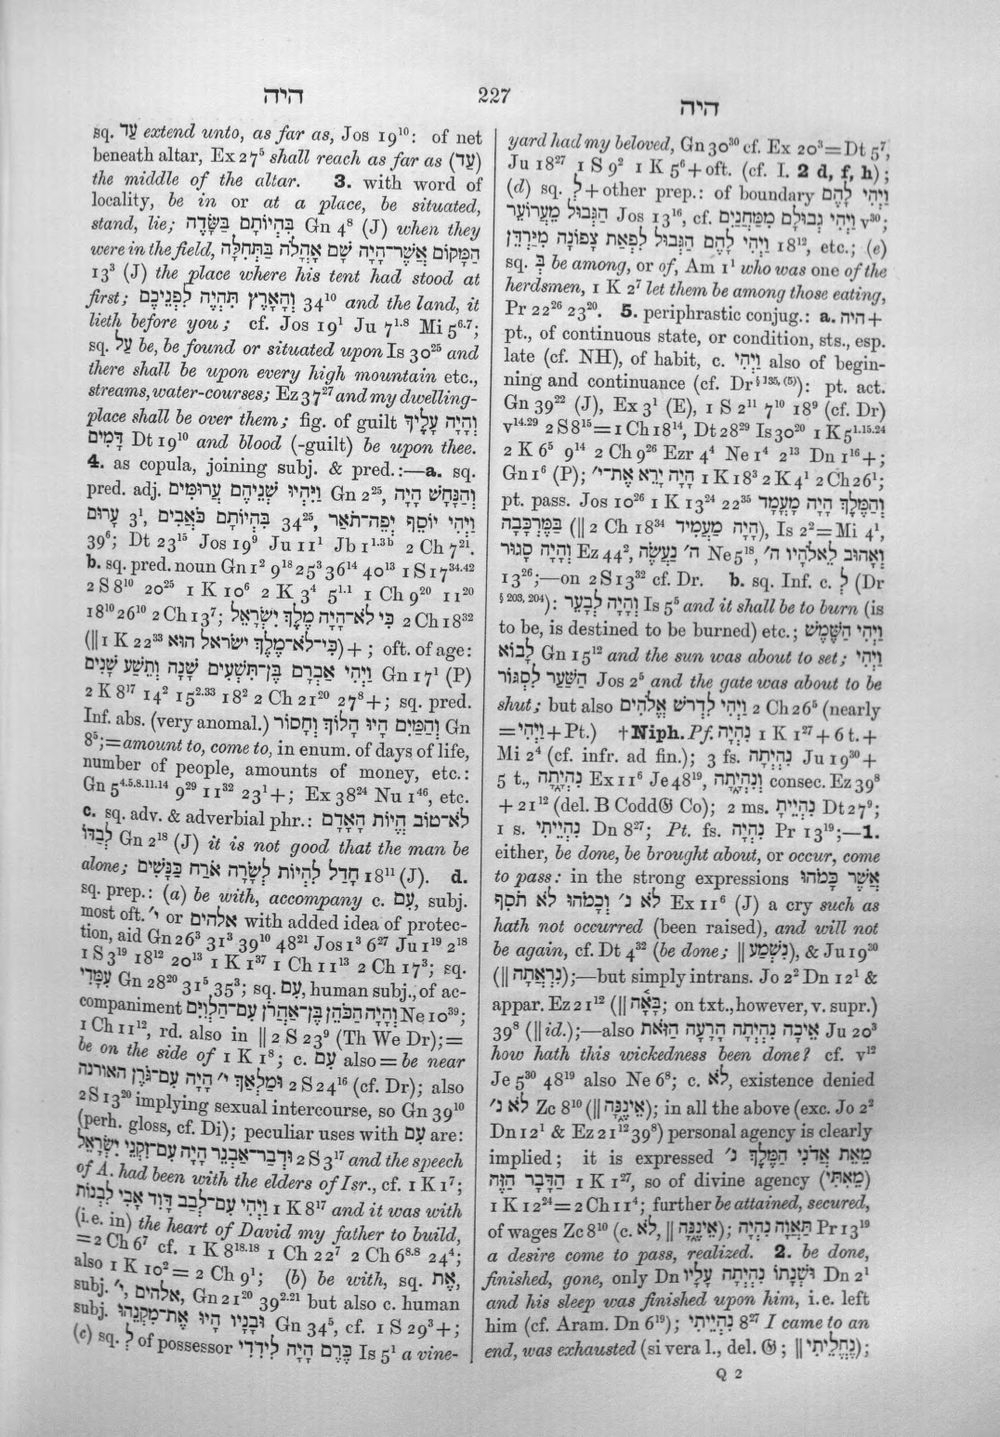 היה
227
היה
sq. עַד extend unto, as far as, Jos 19¹⁰: of net
beneath altar, Ex 27⁵ shall reach as far as (עַד)
the middle of the altar. 3. with word of
locality, be in or at a place, be situated,
stand, lie; בִּהְיוֹתָם בַּשָּׂדֶה Gn 4⁸ (J) when they
were in the field, הַמָּקוֹם אֲשֶׁר־הָיָה שָׁם אָהֳלֹה בַּתְּחִלָּה
13³ (J) the place where his tent had stood at
first; וְהָאָרֶץ תִּהְיֶה לִפְנֵיכֶם 34¹⁰ and the land, it
lieth before you; cf. Jos 19¹ Ju 7¹·⁸ Mi 5⁶·⁷;
sq. עַל be, be found or situated upon Is 30²⁵ and
there shall be upon every high mountain etc.,
streams, water-courses; Ez 37²⁷ and my dwelling-
place shall be over them; fig. of guilt וְהָיָה עָלֶיךָ
דָּמִים Dt 19¹⁰ and blood (-guilt) be upon thee.
4. as copula, joining subj. & pred.:—a. sq.
pred. adj. וַיִּהְיוּ שְׁנֵיהֶם עֲרוּמִּים Gn 2²⁵, וְהַנָּחָשׁ הָיָה
עָרוּם 3¹, בִּהְיוֹתָם כֹּאֲבִים 34²⁵, וַיְהִי יוֹסֵף יְפֵה־תֹאַר
39⁶; Dt 23¹⁵ Jos 19⁹ Ju 11¹ Jb 1¹·³ᵇ 2 Ch 7²¹.
b. sq. pred. noun Gn 1² 9¹⁸ 25³ 36¹⁴ 40¹³ 1 S 17³⁴·⁴²
2 S 8¹⁰ 20²⁵ 1 K 10⁶ 2 K 3⁴ 5¹·¹ 1 Ch 9²⁰ 11²⁰
18¹⁰ 26¹⁰ 2 Ch 13⁷; כִּי לֹא־הָיָה מֶלֶךְ יִשְׂרָאֵל 2 Ch 18³²
(‖ 1 K 22³³ כִּי־לֹא־מֶלֶךְ ישראל הוּא)+; oft. of age:
וַיְהִי אַבְרָם בֶּן־תִּשְׁעִים שָׁנָה וְתֵשַׁע שָׁנִים Gn 17¹ (P)
2 K 8¹⁷ 14² 15²·³³ 18² 2 Ch 21²⁰ 27⁸+; sq. pred.
Inf. abs. (very anomal.) וְהַמַּיִם הָיוּ הָלוֹךְ וְחָסוֹר Gn
8⁵;=amount to, come to, in enum. of days of life,
number of people, amounts of money, etc.:
Gn 5⁴·⁵·⁸·¹¹·¹⁴ 9²⁹ 11³² 23¹+; Ex 38²⁴ Nu 1⁴⁶, etc.
c. sq. adv. & adverbial phr.: לֹא־טוֹב הֱיוֹת הָאָדָם
לְבַדּוֹ Gn 2¹⁸ (J) it is not good that the man be
alone; חָדַל לִהְיוֹת לְשָׂרָה אֹרַח כַּנָּשִׁים 18¹¹ (J). d.
sq. prep.: (a) be with, accompany c. עִם, subj.
most oft. י׳ or אלהים with added idea of protec-
tion, aid Gn 26³ 31³ 39¹⁰ 48²¹ Jos 1³ 6²⁷ Ju 1¹⁹ 2¹⁸
1 S 3¹⁹ 18¹² 20¹³ 1 K 1³⁷ 1 Ch 11¹³ 2 Ch 17³; sq.
עִמָּדִי Gn 28²⁰ 31⁵ 35³; sq. עִם, human subj., of ac-
companiment וְהָיָה הַכֹּהֵן בֶּן־אַהֲרֹן עִם־הַלְוִיִּם Ne 10³⁹;
1 Ch 11¹², rd. also in ‖ 2 S 23⁹ (Th We Dr);=
be on the side of 1 K 1⁸; c. עִם also = be near
וּמַלְאַךְ י׳ הָיָה עִם־גֹּרֶן האורנה 2 S 24¹⁶ (cf. Dr); also
2 S 13²⁰ implying sexual intercourse, so Gn 39¹⁰
(perh. gloss, cf. Di); peculiar uses with עִם are:
וּדְבַר־אַבְנֵר הָיָה עִם־זִקְנֵי יִשְׂרָאֵל 2 S 3¹⁷ and the speech
of A. had been with the elders of Isr., cf. 1 K 1⁷;
וַיְהִי עִם־לְבַב דָּוִד אָבִי לִבְנוֹת 1 K 8¹⁷ and it was with
(i.e. in) the heart of David my father to build,
=2 Ch 6⁷ cf. 1 K 8¹⁸·¹⁸ 1 Ch 22⁷ 2 Ch 6⁸·⁸ 24⁴;
also 1 K 10² = 2 Ch 9¹; (b) be with, sq. אֵת,
subj. י׳, אלהים, Gn 21²⁰ 39²·²¹ but also c. human
subj. וּבָנָיו הָיוּ אֶת־מִקְנֵהוּ Gn 34⁵, cf. 1 S 29³+;
(c) sq. לְ of possessor כֶּרֶם הָיָה לִידִידִי Is 5¹ a vine-
yard had my beloved, Gn 30³⁰ cf. Ex 20³=Dt 5⁷,
Ju 18²⁷ 1 S 9² 1 K 5⁶+oft. (cf. I. 2 d, f, h);
(d) sq. לְ+other prep.: of boundary וַיְהִי לָהֶם
הַגְּבוּל מֵעֲרוֹעֵר Jos 13¹⁶, cf. וַיְהִי גְבוּלָם מִמַּחֲנַיִם v³⁰;
וַיְהִי לָהֶם הַגְּבוּל לִפְאַת צָפוֹנָה מִן־הַיַּרְדֵּן 18¹², etc.; (e)
sq. בְּ be among, or of, Am 1¹ who was one of the
herdsmen, 1 K 2⁷ let them be among those eating,
Pr 22²⁶ 23²⁰. 5. periphrastic conjug.: a. היה+
pt., of continuous state, or condition, sts., esp.
late (cf. NH), of habit, c. וַיְהִי also of begin-
ning and continuance (cf. Dr§ ¹³⁵, ⁽⁵⁾): pt. act.
Gn 39²² (J), Ex 3¹ (E), 1 S 2¹¹ 7¹⁰ 18⁹ (cf. Dr)
v¹⁴·²⁹ 2 S 8¹⁵=1 Ch 18¹⁴, Dt 28²⁹ Is 30²⁰ 1 K 5¹·¹⁵·²⁴
2 K 6⁵ 9¹⁴ 2 Ch 9²⁶ Ezr 4⁴ Ne 1⁴ 2¹³ Dn 1¹⁶+;
Gn 1⁶ (P); הָיָה יָרֵא אֶת־י׳ 1 K 18³ 2 K 4¹ 2 Ch 26¹;
pt. pass. Jos 10²⁶ 1 K 13²⁴ 22³⁵ וְהַמֶּלֶךְ הָיָה מָעֳמָד
בַּמֶּרְכָּבָה (‖ 2 Ch 18³⁴ הָיָה מַעֲמִיד), Is 2²=Mi 4¹,
וְהָיָה סָגוּר Ez 44², ה׳ נַעֲשֶׂה Ne 5¹⁸, וְאָהוּב לֵאלֹהָיו ה׳
13²⁶;—on 2 S 13³² cf. Dr. b. sq. Inf. c. לְ (Dr
§ ²⁰³, ²⁰⁴): וְהָיָה לְבָעֵר Is 5⁵ and it shall be to burn (is
to be, is destined to be burned) etc.; וַיְהִי הַשֶּׁמֶשׁ
לָבוֹא Gn 15¹² and the sun was about to set; וַיְהִי
הַשַּׁעַר לִסְגּוֹר Jos 2⁵ and the gate was about to be
shut; but also וַיְהִי לִדְרֹשׁ אֱלֹהִים 2 Ch 26⁵ (nearly
=וַיְהִי+Pt.) †Niph. Pf. נִהְיָה 1 K 1²⁷+6 t.+
Mi 2⁴ (cf. infr. ad fin.); 3 fs. נִהְיְתָה Ju 19³⁰+
5 t., נִהְיָ֑תָה Ex 11⁶ Je 48¹⁹, וְנִהְיָ֑תָה consec. Ez 39⁸
+21¹² (del. B Codd𝔊 Co); 2 ms. נִהְיֵיתָ Dt 27⁹;
1 s. נִהְיֵיתִי Dn 8²⁷; Pt. fs. נִהְיָה Pr 13¹⁹;—1.
either, be done, be brought about, or occur, come
to pass: in the strong expressions אֲשֶׁר כָּמֹהוּ
לֹא נ׳ וְכָמֹהוּ לֹא תֹסִף Ex 11⁶ (J) a cry such as
hath not occurred (been raised), and will not
be again, cf. Dt 4³² (be done; ‖ נִשְׁמַע), & Ju 19³⁰
(‖ נִרְאֲתָה);—but simply intrans. Jo 2² Dn 12¹ &
appar. Ez 21¹² (‖ בָּאָה; on txt., however, v. supr.)
39⁸ (‖ id.);—also אֵיכָה נִהְיְתָה הָרָעָה הַזֹּאת Ju 20³
how hath this wickedness been done? cf. v¹²
Je 5³⁰ 48¹⁹ also Ne 6⁸; c. לֹא, existence denied
לֹא נ׳ Zc 8¹⁰ (‖ אֵינֶ֑נָּה); in all the above (exc. Jo 2²
Dn 12¹ & Ez 21¹² 39⁸) personal agency is clearly
implied; it is expressed מֵאֵת אֲדֹנִי הַמֶּלֶךְ נ׳
הַדָּבָר הַזֶּה 1 K 1²⁷, so of divine agency (מֵאִתִּי)
1 K 12²⁴=2 Ch 11⁴; further be attained, secured,
of wages Zc 8¹⁰ (c. לֹא, ‖ אֵינֶ֑נָּה); תַּאֲוָה נִהְיָה Pr 13¹⁹
a desire come to pass, realized. 2. be done,
finished, gone, only Dn וּשְׁנָתוֹ נִהְיְתָה עָלָיו Dn 2¹
and his sleep was finished upon him, i.e. left
him (cf. Aram. Dn 6¹⁹); נִהְיֵיתִי 8²⁷ I came to an
end, was exhausted (si vera l., del. 𝔊; ‖ נֶחֱלֵיתִי);
Q 2